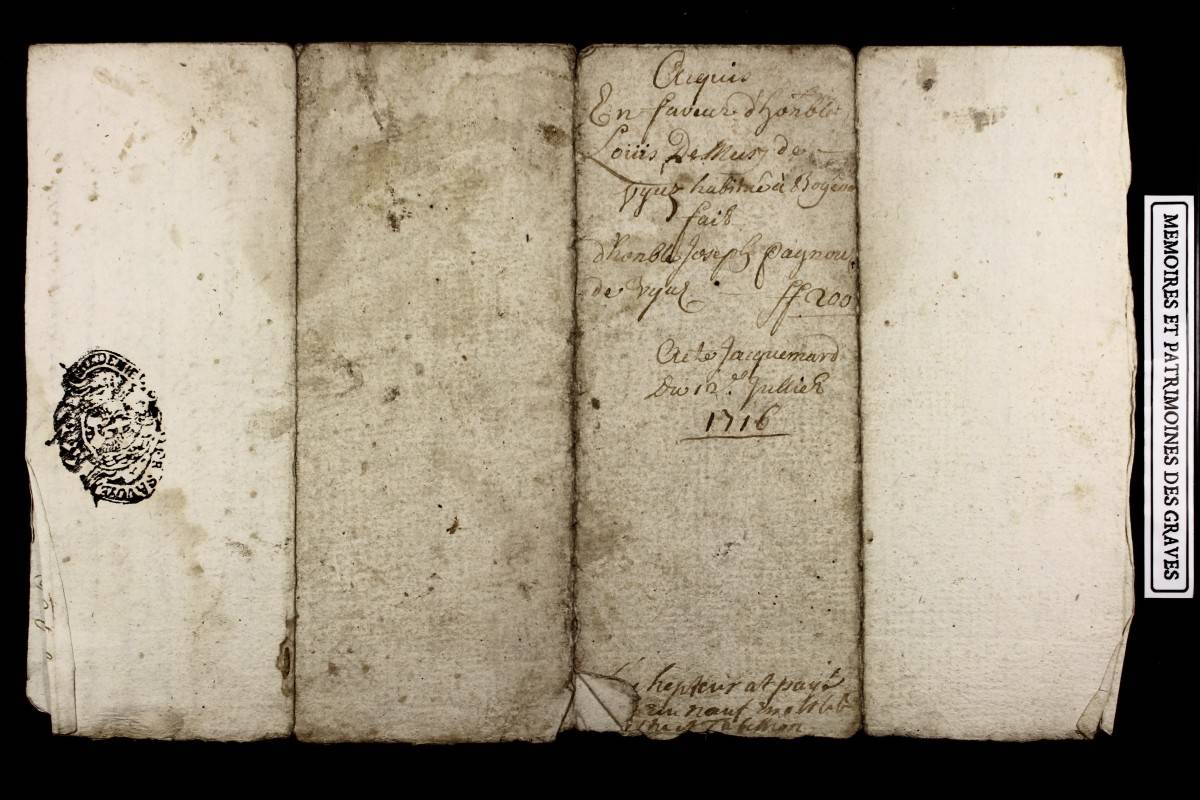 Acquis
En faveur d'honble
Louis DeMus de
Vyuz habitué à
fait
d'honble Joseph pagnou
de Vyuz ff. 200
Acte Jacquemard
Du 12.e Julliet
1716
at payé
neuf
MEMOIRES ET PATRIMOINES DES GRAVES